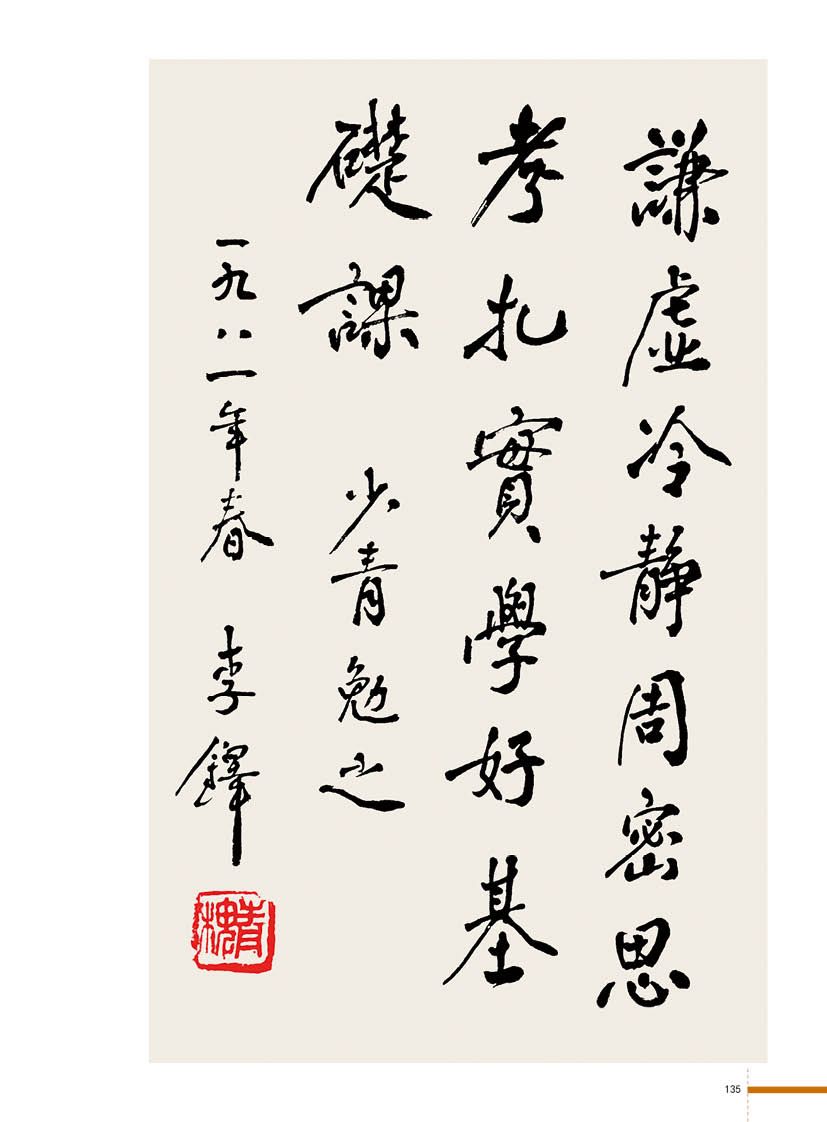 謙虛冷靜周密思
考扎實學好基
礎課 少青勉之
一九八一年春 李鐸
青槐
135